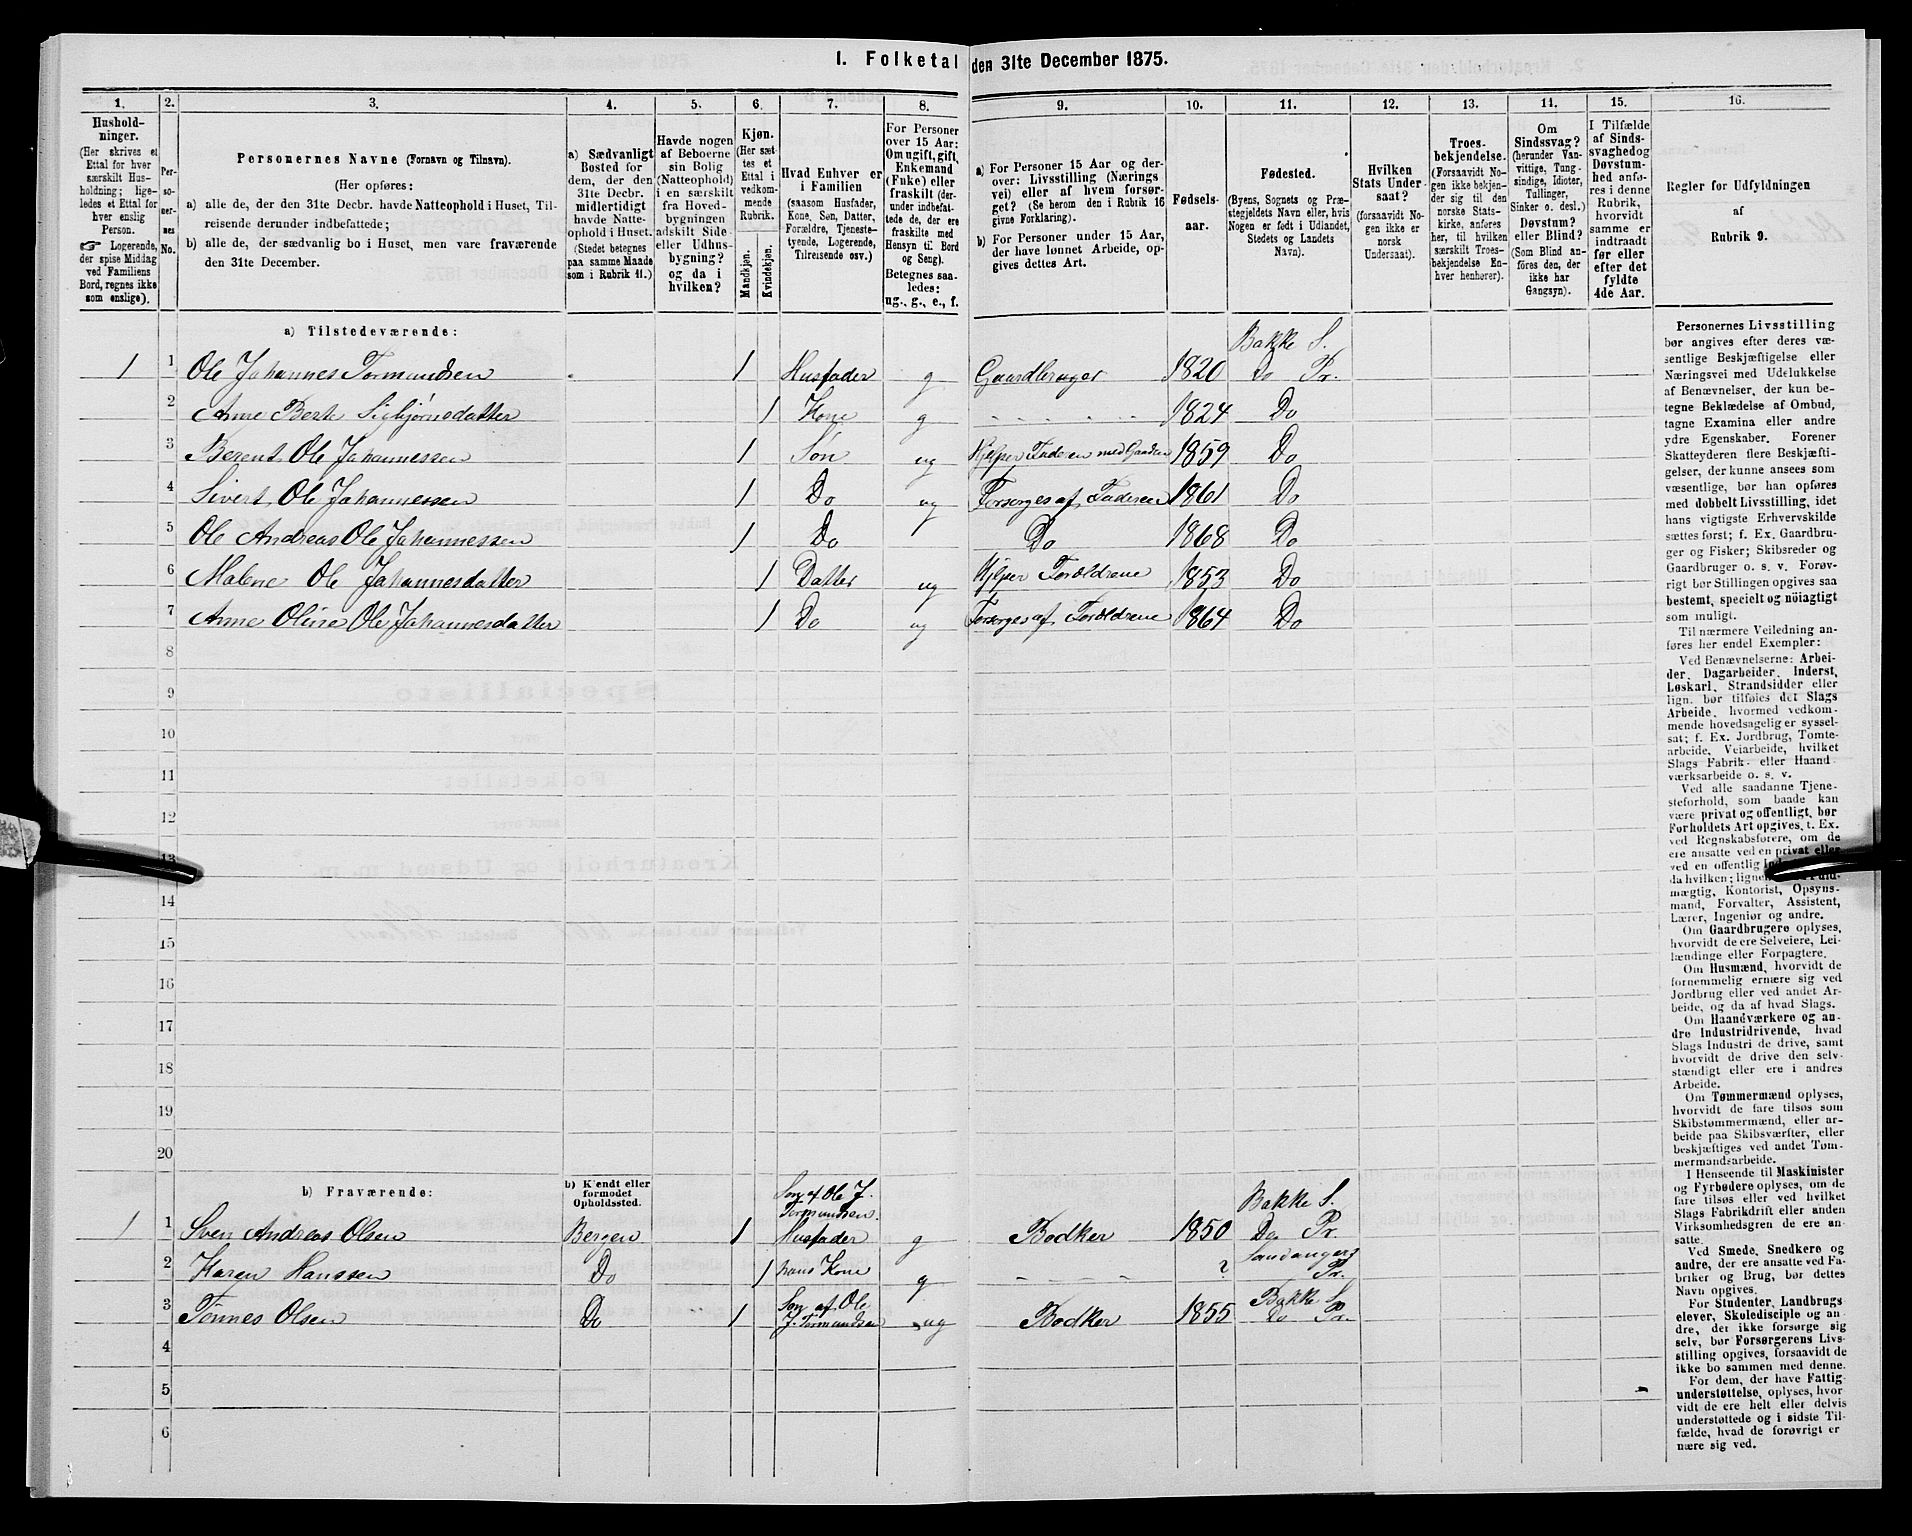 I. Folketal den 31te December 1875.
1. 2. 3. 4. 5. 6. 7. 8. 9. 10. 11. 12. 13. 14. 15. 16.
Hushold-
ninger.
(Her skrives et
Ettal for hver
særskilt Hus-
holdning; lige-
ledes et Ettal for
hver enslig
Person.
☞ Logerende,
der spise Middag
ved Familiens
Bord, regnes ikke
som enslige).
Per-
so-
ner-
nes
No.
Personernes Navne (Fornavn og Tilnavn).
(Her opføres:
a) alle de, der den 31te Decbr. havde Natteophold i Huset, Til-
reisende derunder indbefattede;
b) alle de, der sædvanlig bo i Huset, men vare fraværende
den 31te December.
a) Sædvanligt
Bosted for
dem, der den
31te Decbr.
midlertidigt
havde Natte-
ophold i Huset.
(Stedet betegnes
paa samme Maade
som i Rubrik 11.)
Havde nogen
af Beboerne
sin Bolig
(Natteophold)
i en særskilt
fra Hoved-
bygningen
adskilt Side-
eller Udhus-
bygning?
og da i
hvilken?
Kjøn.
(Her sæt-
tes et
Ettal i
vedkom-
mende
Rubrik.
Mandkjøn.
Kvindekjøn.
Hvad Enhver er
i Familien
(saasom Husfader,
Kone, Søn, Datter,
Forældre, Tjeneste-
tyende, Logerende,
Tilreisende osv.)
For Personer
over 15 Aar:
Om ugift, gift,
Enkemand
(Enke) eller
fraskilt (der-
under indbefat-
tede de, der ere
fraskilte med
Hensyn til Bord
og Seng).
Betegnes saa-
ledes:
ug., g., e., f.
a) For Personer 15 Aar og der-
over: Livsstilling (Nærings-
vei) eller af hvem forsør-
get? (Se herom den i Rubrik 16
givne Forklaring).
b) For Personer under 15 Aar,
der have lønnet Arbeide, op-
gives dettes Art.
Fødsels-
aar.
Fødested.
(Byens, Sognets og Præ-
stegjeldets Navn eller, hvis
Nogen er født i Udlandet,
Stedets og Landets
Navn).
Hvilken
Stats Under-
saat?
(forsaavidt No-
gen ikke er
norsk
Undersaat).
Troes-
bekjendelse.
(Forsaavidt No-
gen ikke bekjen-
der sig til den
norske Stats-
kirke, anføres
her, til hvilken
særskilt Troes-
bekjendelse En-
hver henhører).
Om
Sindssvag?
(herunder Van-
vittige, Tung-
sindige, Idioter,
Tullinger,
Sinker o. desl.)
Døvstum?
eller Blind?
(Som Blind an-
føres den, der
ikke har
Gangsyn).
I Tilfælde
af Sinds-
svaghed og
Døvstum-
hed anfø-
res i denne
Rubrik,
hvorvidt
samme er
indtraadt
før eller
efter det
fyldte
4de Aar.
Regler for Udfyldningen
af
Rubrik 9.
a) Tilstedeværende:
Bakke S.
1 1 Ole Johannes Tormundsen 1 Husfader g Gaardbruger 1820 Do Pr.
2 Anne Berte Sigbjørnsdatter 1 Kone g 1824 Do
3 Berent Ole Johannessen 1 Søn ug Hjelper Faderen med Gaarden 1859 Do
4 Sivert Ole Johannessen 1 Do ug Forsørges af Faderen 1861 Do
5 Ole Andreas Ole Johannessen 1 Do Do 1868 Do
6 Malene Ole Johannesdatter 1 Datter ug Hjelper Forældrene 1853 Do
7 Anne Oline Ole Johannesdatter 1 Do ug Forsørges af Forældrene 1864 Do
8
9
10
11
12
13
14
15
16
17
18
19
20
b) Fraværende:
b) Kjendt eller
formodet
Opholdssted.
Søn af Ole J.
Tormundsen.
Bakke S.
1 1 Sven Andreas Olsen Bergen 1 Husfader g Bødker 1850 Do Pr.
2 Karen Hanssen Do 1 hans Kone g ? Pr.
3 Tønnes Olsen Do 1 Søn af Ole J. Tormundsen ug Bødker 1855 Bakke S. Do Pr.
4
5
6
Personernes Livsstilling
bør angives efter deres væ-
sentlige Beskjæftigelse eller
Næringsvei med Udelukkelse
af Benævnelser, der kun be-
tegne Beklædelse af Ombud,
tagne Examina eller andre
ydre Egenskaber. Forener
Skatteyderen flere Beskjæfti-
gelser, der kunne ansees som
væsentlige, bør han opføres
med dobbelt Livsstilling, idet
hans vigtigste Erhvervskilde
sættes først; f. Ex. Gaardbru-
ger og Fisker; Skibsreder og
Gaardbruger o. s. v. Forøv-
rigt bør Stillingen opgives saa
bestemt, specielt og nøiagtigt
som muligt.
Til nærmere Veiledning an-
føres her endel Exempler:
Ved Benævnelserne: Arbei-
der, Dagarbeider, Inderst,
Løskarl, Strandsidder eller
lign. bør tilføies det Slags
Arbeide, hvormed vedkom-
mende hovedsagelig er syssel-
sat; f. Ex. Jordbrug, Tomte-
arbeide, Veiarbeide, hvilket
Slags Fabrik- eller Haand-
værksarbeide o. s. v.
Ved alle saadanne Tjene-
steforhold, som baade kan
være privat og offentligt, bør
Forholdets Art opgives, t. Ex.
ved Regnskabsførere, om de
ere ansatte ved en privat eller
ved en offentlig
da hvilken;
mægtig, Kontorist, Opsyns-
mand, Forvalter, Assistent,
Lærer, Ingeniør og andre.
Om Gaardbrugere oplyses,
hvorvidt de ere Selveiere, Lei-
lændinge eller Forpagtere.
Om Husmænd, hvorvidt de
fornemmelig ernære sig ved
Jordbrug eller ved andet Ar-
beide, og da af hvad Slags.
Om Haandværkere og an-
dre Industridrivende, hvad
Slags Industri de drive, samt
hvorvidt de drive den selv-
stændigt eller ere i andres
Arbeide.
Om Tømmermænd oplyses,
hvorvidt de fare tilsøs som
Skibstømmermænd, eller ar-
beide paa Skibsværfter, eller
beskjæftiges ved andet Tøm-
mermandsarbeide.
I Henseende til Maskinister
og Fyrbødere oplyses, om de
fare tilsøs eller ved hvilket
Slags Fabrikdrift eller anden
Virksomhedsgren de ere an-
satte.
Ved Smede, Snedkere og
andre, der ere ansatte ved Fa-
briker og Brug, bør dettes
Navn opgives.
For Studenter, Landbrugs-
elever, Skoledisciple og an-
dre, det ikke forsørge sig
selv, bør Forsørgerens Livs-
stilling opgives, forsaavidt de
ikke bo sammen med denne.
For dem, der have Fattig-
understøttelse, oplyses, hvor-
vidt de ere helt eller delvis
understøttede og i sidste Til-
fælde, hvad de forøvrigt er
nære sig ved.